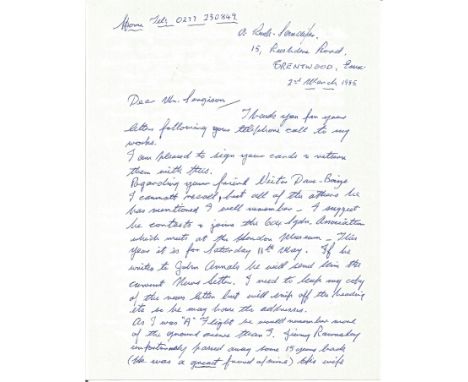 Home Tel: 0277 230849
15, Rushdene Road,
BRENTWOOD, Essex
2nd March 1985
Dear Mr.
Thank you for your
letter following your telephone call to my
works.
I am pleased to sign your cards & return
them with this.
Regarding your friend Victor
I cannot recall, but all of the others he
has mentioned I well remember. I suggest
he contacts & joins the Sqdn Association
which meets at the Hendon Museum. This
year it is for Saturday 11th May. If he
writes to John he will send him the
current News letter. I need to keep my copy
of the news letter but will snip off the heading
etc so he may have the addresses.
As I was "A" Flight he would remember more
of the ground names than I. Ginny
unfortunately passed away some 15 years back
(He was a great friend of mine) his wife